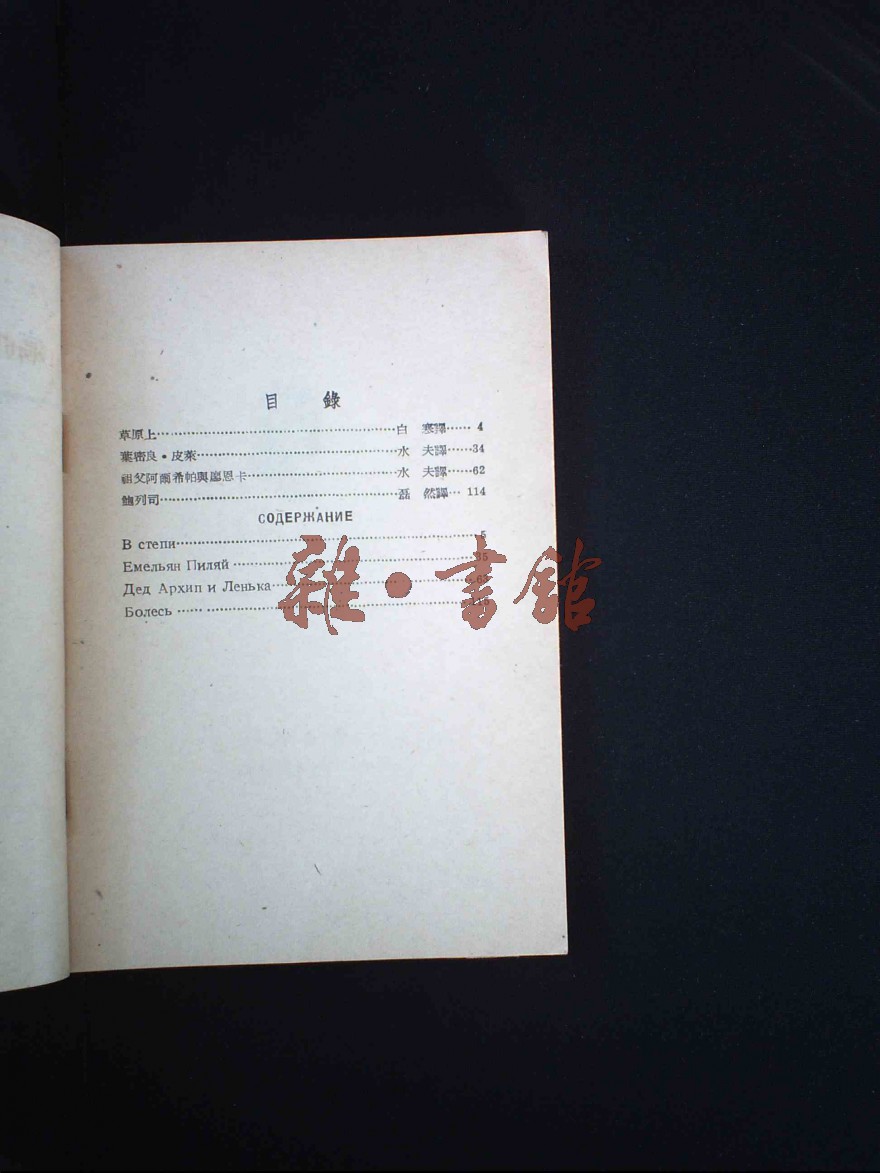 目 錄
草原上……白 寒譯……4
葉密良·皮萊……水 夫譯……34
祖父阿爾希帕與廖恩卡……水 夫譯……62
鮑列司……磊 然譯…114
СОДЕРЖАНИЕ
В степи……5
Емельян Пиляй……35
Дед Архип и Ленька……63
Болесь……115
雜·書館